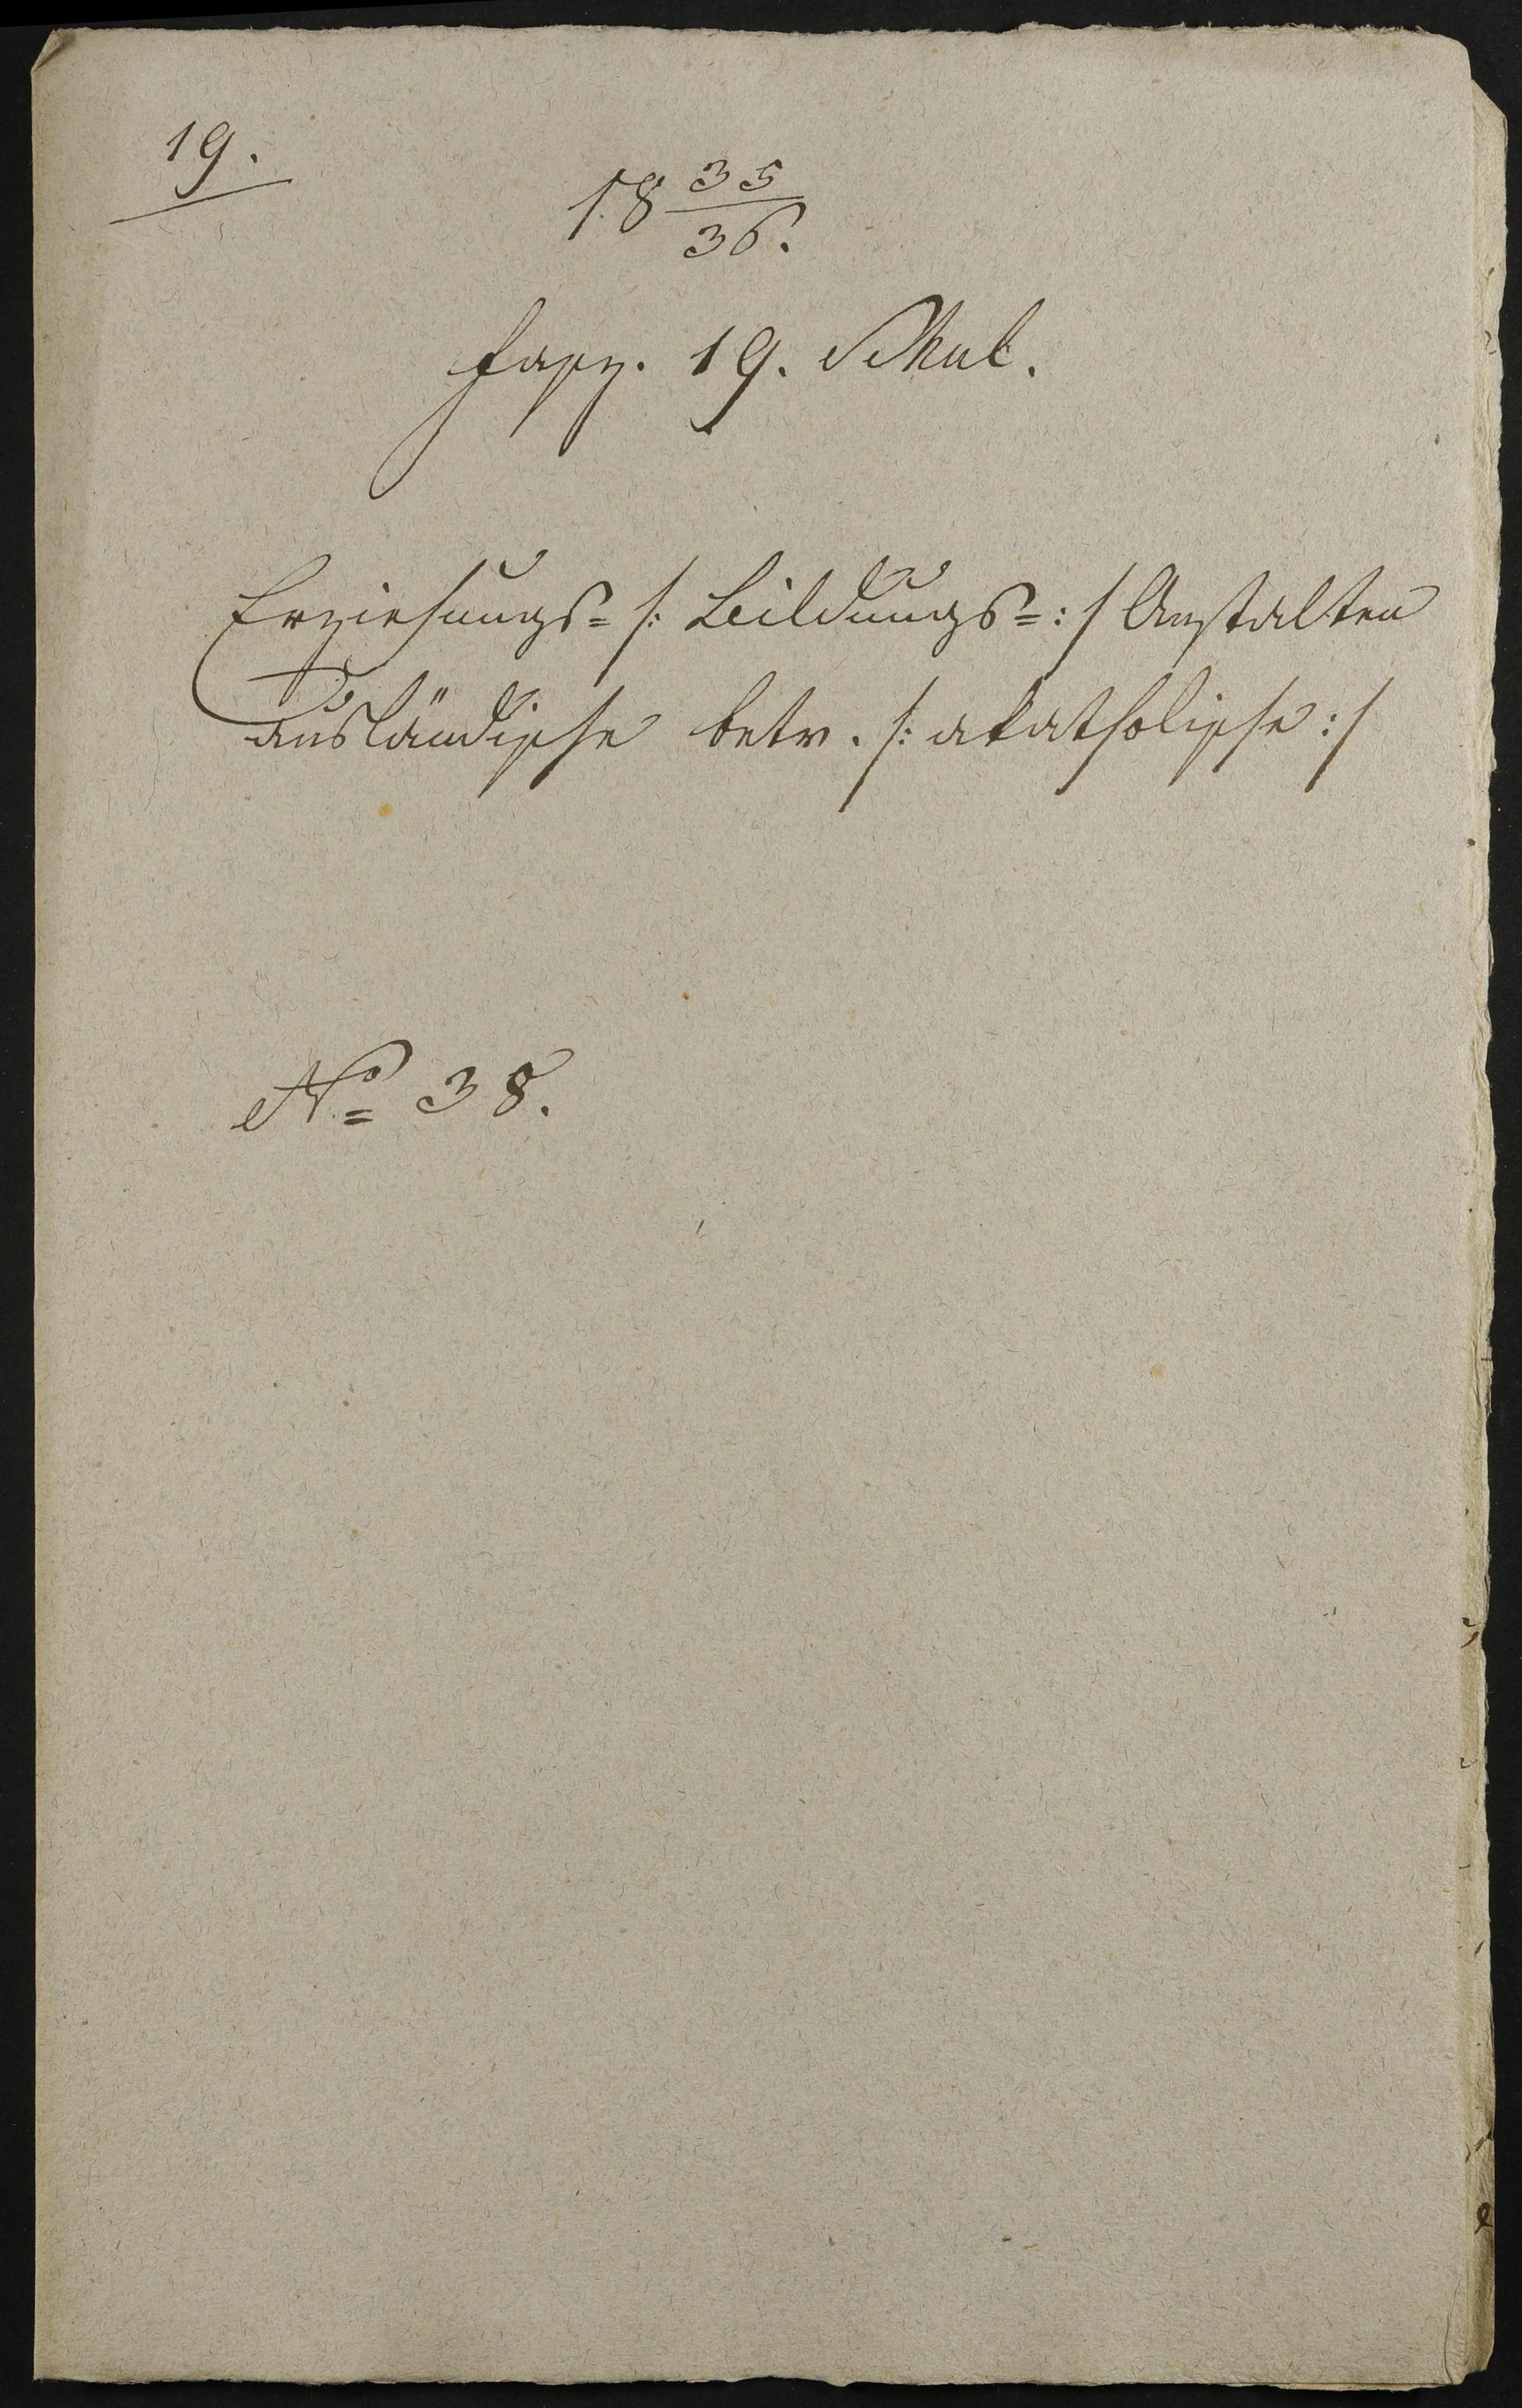 19.
18 35/36.
Fasz. 19. Schul.
Erziehungs= /: Bildungs=:/ Anstalten
ausländische betr. /: akatholische :/
No= 38.